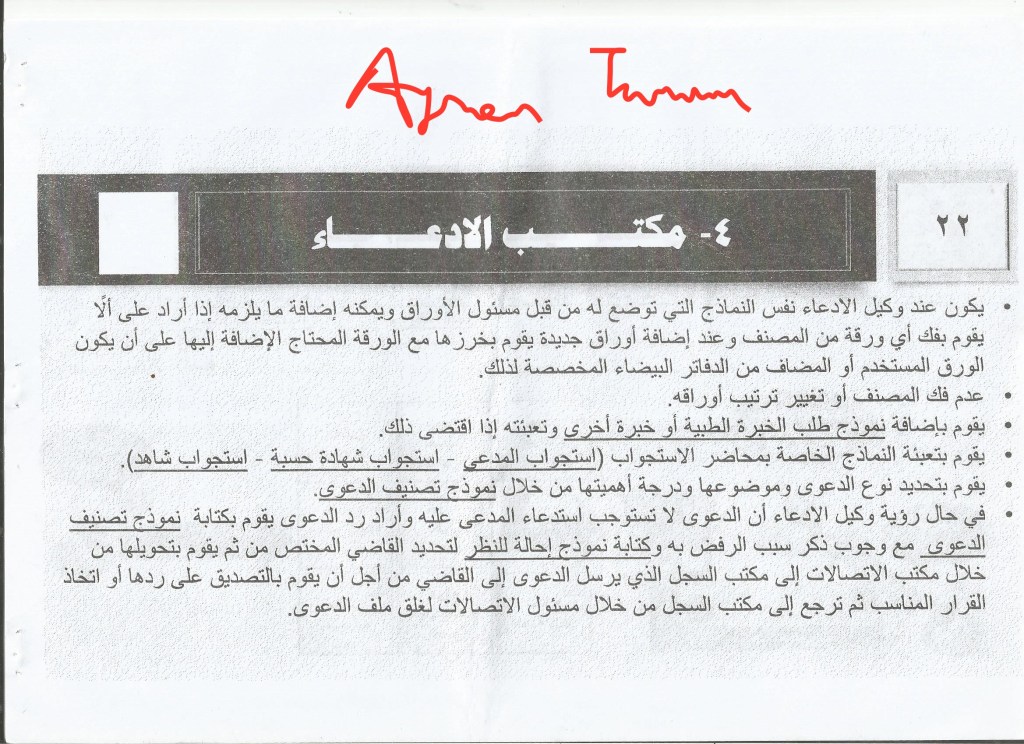 ٢٢
٤- مكتـــب الادعـــاء
• يكون عند وكيل الادعاء نفس النماذج التي توضع له من قبل مسئول الأوراق ويمكنه إضافة ما يلزمه إذا أراد على ألّا
يقوم بفك أي ورقة من المصنف وعند إضافة أوراق جديدة يقوم بخرزها مع الورقة المحتاج الإضافة إليها على أن يكون
الورق المستخدم أو المضاف من الدفاتر البيضاء المخصصة لذلك.
• عدم فك المصنف أو تغيير ترتيب أوراقه.
• يقوم بإضافة نموذج طلب الخبرة الطبية أو خبرة أخرى وتعبئته إذا اقتضى ذلك.
• يقوم بتعبئة النماذج الخاصة بمحاضر الاستجواب (استجواب المدعي - استجواب شهادة حسبة - استجواب شاهد).
• يقوم بتحديد نوع الدعوى وموضوعها ودرجة أهميتها من خلال نموذج تصنيف الدعوى.
• في حال رؤية وكيل الادعاء أن الدعوى لا تستوجب استدعاء المدعى عليه وأراد رد الدعوى يقوم بكتابة نموذج تصنيف
الدعوى مع وجوب ذكر سبب الرفض به وكتابة نموذج إحالة للنظر لتحديد القاضي المختص من ثم يقوم بتحويلها من
خلال مكتب الاتصالات إلى مكتب السجل الذي يرسل الدعوى إلى القاضي من أجل أن يقوم بالتصديق على ردها أو اتخاذ
القرار المناسب ثم ترجع إلى مكتب السجل من خلال مسئول الاتصالات لغلق ملف الدعوى.